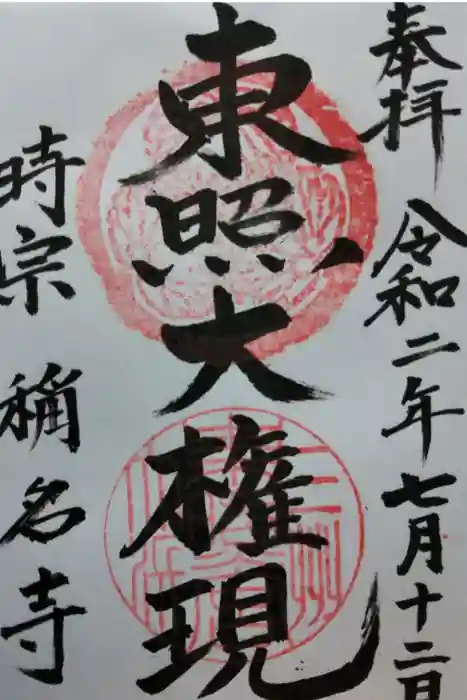 奉拝
令和二年七月十二日
東照大権現
時宗 稱名寺